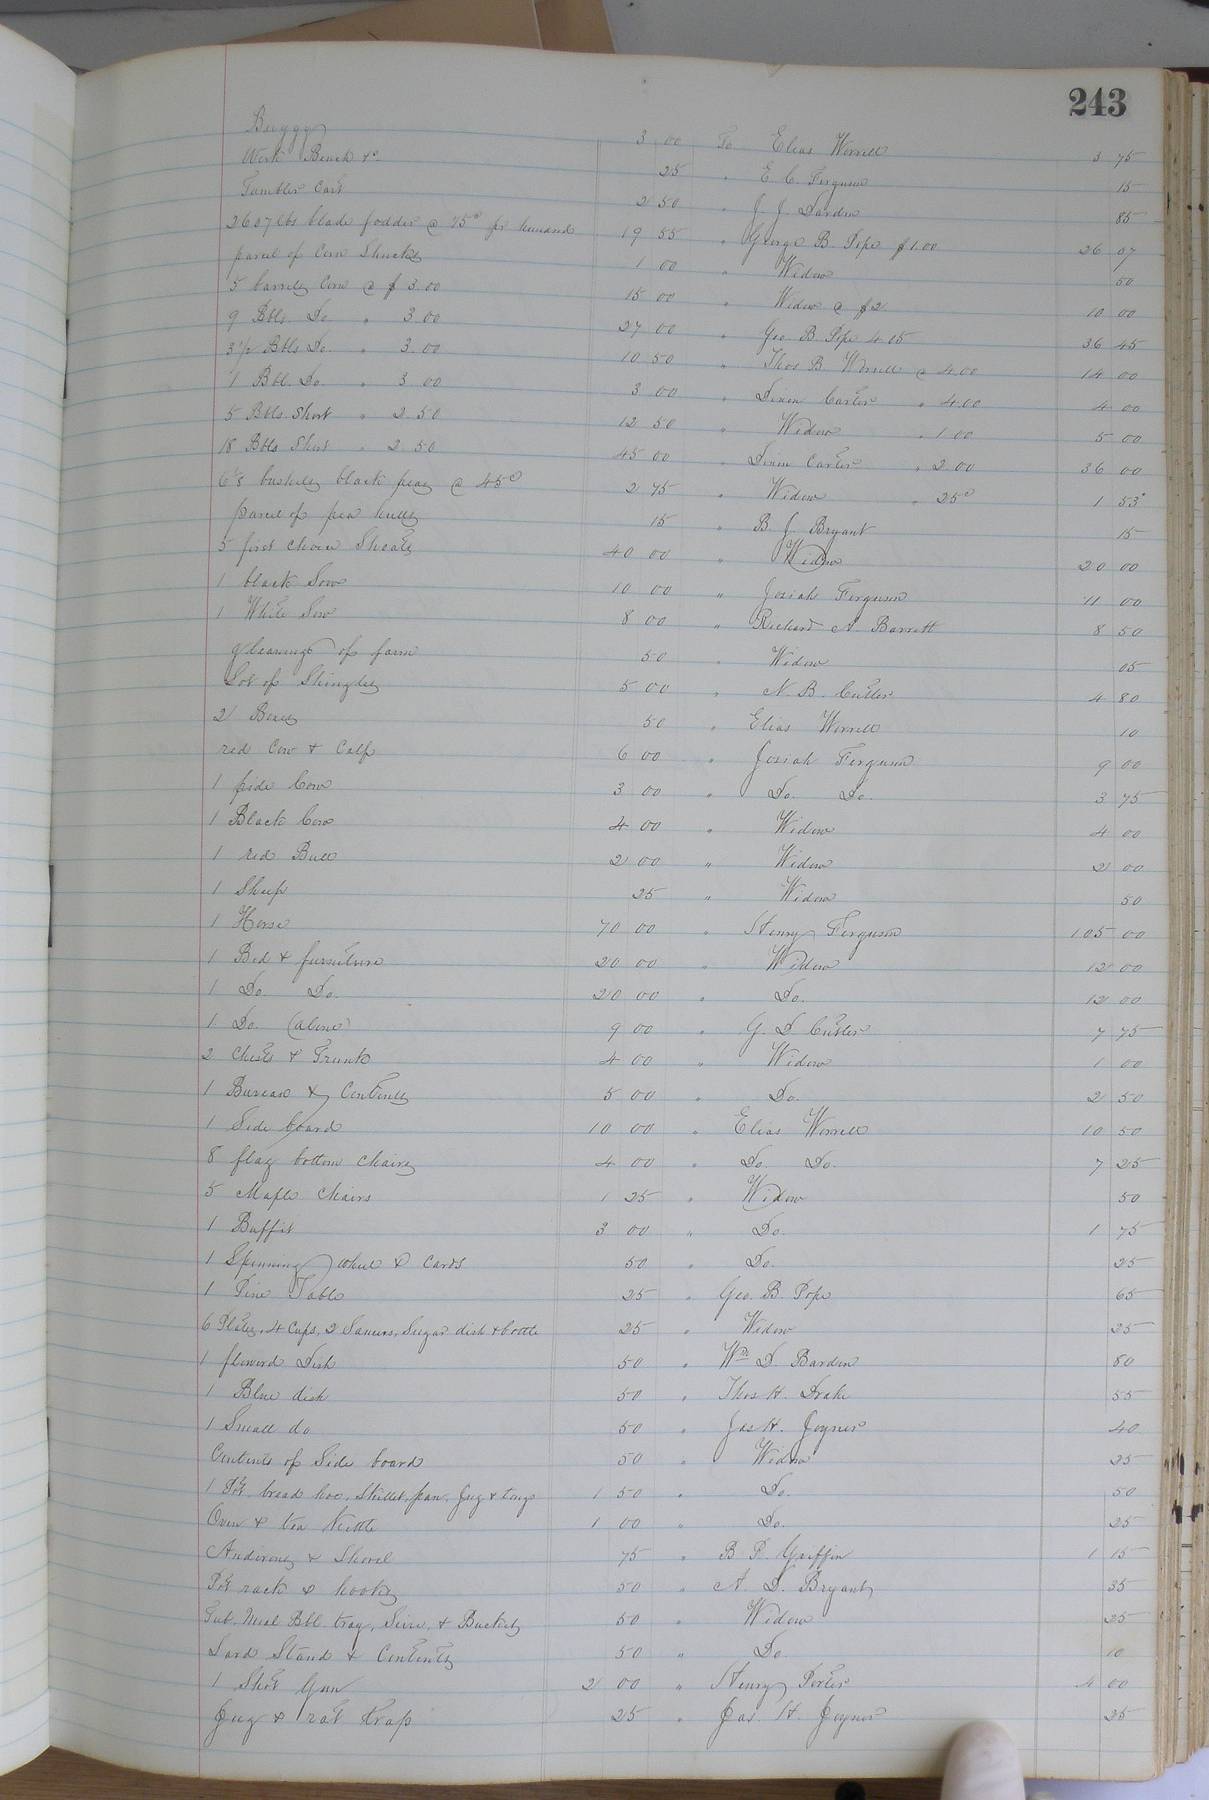 243
Buggy 3 00 To Elias Worrell 3 75
Work Bench &c 25 " E. C. Ferguson 15
Tumbler Cart 2 50 " J. J. Darden 85
2607 lbs blade fodder @ 75c pr hundred 19 55 " George B. Pope $1.00 26 07
parcel of Corn Shucks 1 00 " Widow 50
5 barrels Corn @ $3.00 15 00 " Widow @ $2 10 00
9 Bbls. Do. " 3.00 27 00 " Geo. B. Pope 4.05 36 45
3 1/2 Bbls Do. " 3.00 10 50 " Thos B. Worrell @ 4.00 14 00
1 Bbl. Do. " 3 00 3 00 " Dixon Carter " 4.00 4 00
5 Bbls. Short " 2.50 12 50 " Widow " 1 00 5 00
18 Bbls Short " 2 50 45 00 " Dixon Carter " 2 00 36 00
bushels black peas @ 45c 2 75 " Widow " 25c 1 53
parcel of pea hulls 15 " B. J. Bryant 15
5 first choice Shoats 40 00 " Widow 20 00
1 black Sow 10 00 " Josiah Ferguson 11 00
1 White Sow 8 00 " Richard A. Barrett 8 50
gleanings of farm 50 " Widow 05
Lot of Shingles 5 00 " N. B. Cutler 4 80
2 50 " Elias Worrell 10
red Cow & Calf 6 00 " Josiah Ferguson 9 00
1 pide Cow 3 00 " Do. Do. 3 75
1 Black Cow 4 00 " Widow 4 00
1 red Bull 2 00 " Widow 2 00
1 Sheep 25 " Widow 50
1 Horse 70 00 " Henry Ferguson 105 00
1 Bed & furniture 20 00 " Widow 12 00
1 Do. Do. 20 00 " Do. 12 00
1 Do. (alone) 9 00 " G. D Cutler 7 75
2 Chests & Trunk 4 00 " Widow 1 00
1 Bureau & Contents 5 00 " Do. 2 50
1 Side board 10 00 " Elias Worrell 10 50
8 flag bottom Chairs 4 00 " Do. Do. 7 25
5 Maple Chairs 1 25 " Widow 50
1 Buffit 3 00 " Do. 1 75
1 Spinning wheel & Cards 50 " Do. 25
1 Pine Table 25 " Geo. B. Pope 65
6 Plates, 4 Cups, 2 Saucers, Sugar dish & bottle 25 " Widow 25
1 flowerd Dish 50 " Wm D. Barden 80
1 Blue dish 50 " Thos H. Drake 55
1 Small do 50 " Jas H. Joyner 40
Contents of Side board 50 " Widow 25
1 Pot bread hoe, Skillet, pan, Jug & tongs 1 50 " Do. 50
Oven & tea Kettle 1 00 " Do. 25
Andirons & Shovel 75 " B. P. Griffin 1 15
Pot rack & hooks 50 " A. D. Bryant 35
Tub, Meal Bbl. tray, Sieve, & Buckets 50 " Widow 25
Lard Stand & Contents 50 " Do. 10
1 Shot Gun 2 00 " Henry Porter 4 00
Jug & rat trap 25 " Jas. H. Joyner 25